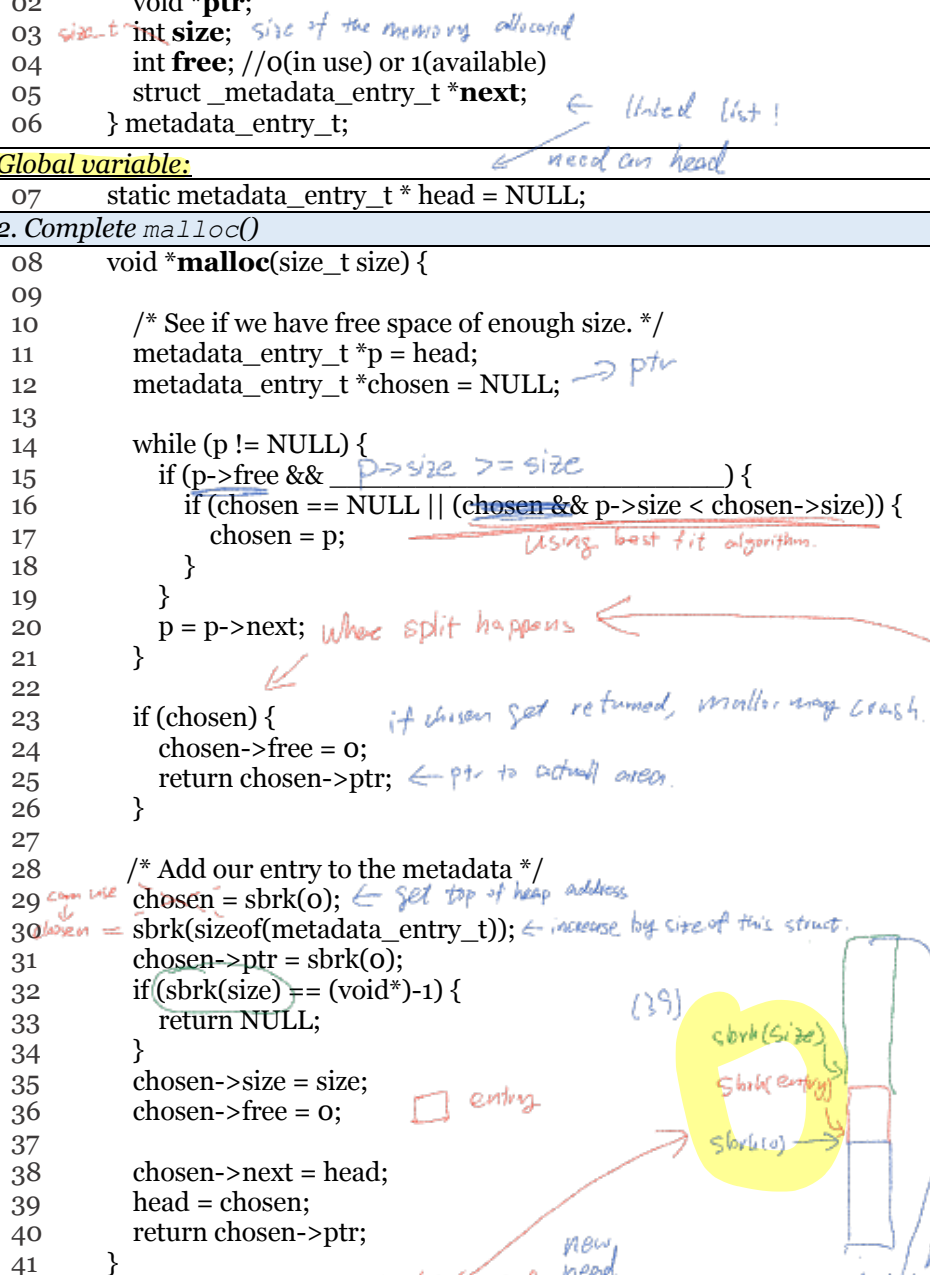 02 void *ptr;
03 size_t int size; size of the memory allocated
04 int free; //0(in use) or 1(available)
05 struct _metadata_entry_t *next;
← linked list !
06 } metadata_entry_t;
need an head
Global variable:
07 static metadata_entry_t * head = NULL;
2. Complete malloc()
08 void *malloc(size_t size) {
09
10 /* See if we have free space of enough size. */
11 metadata_entry_t *p = head;
12 metadata_entry_t *chosen = NULL; → ptr
13
14 while (p != NULL) {
15 if (p->free && p->size >= size) {
16 if (chosen == NULL || (chosen && p->size < chosen->size)) {
17 chosen = p; Using best fit algorithm.
18 }
19 }
20 p = p->next; where split happens
21 }
22
23 if (chosen) { if chosen get returned, malloc may crash.
24 chosen->free = 0;
25 return chosen->ptr; ← ptr to actuall area.
26 }
27
28 /* Add our entry to the metadata */
29 can use chosen = sbrk(0); ← get top of heap address
30 chosen = sbrk(sizeof(metadata_entry_t)); ← increase by size of this struct.
31 chosen->ptr = sbrk(0);
32 if (sbrk(size) == (void*)-1) {
(39)
33 return NULL;
sbrk(size)
34 }
35 chosen->size = size;
sbrk(entry)
36 chosen->free = 0; entry
37
sbrk(0)
38 chosen->next = head;
39 head = chosen;
40 return chosen->ptr;
new
41 }
head